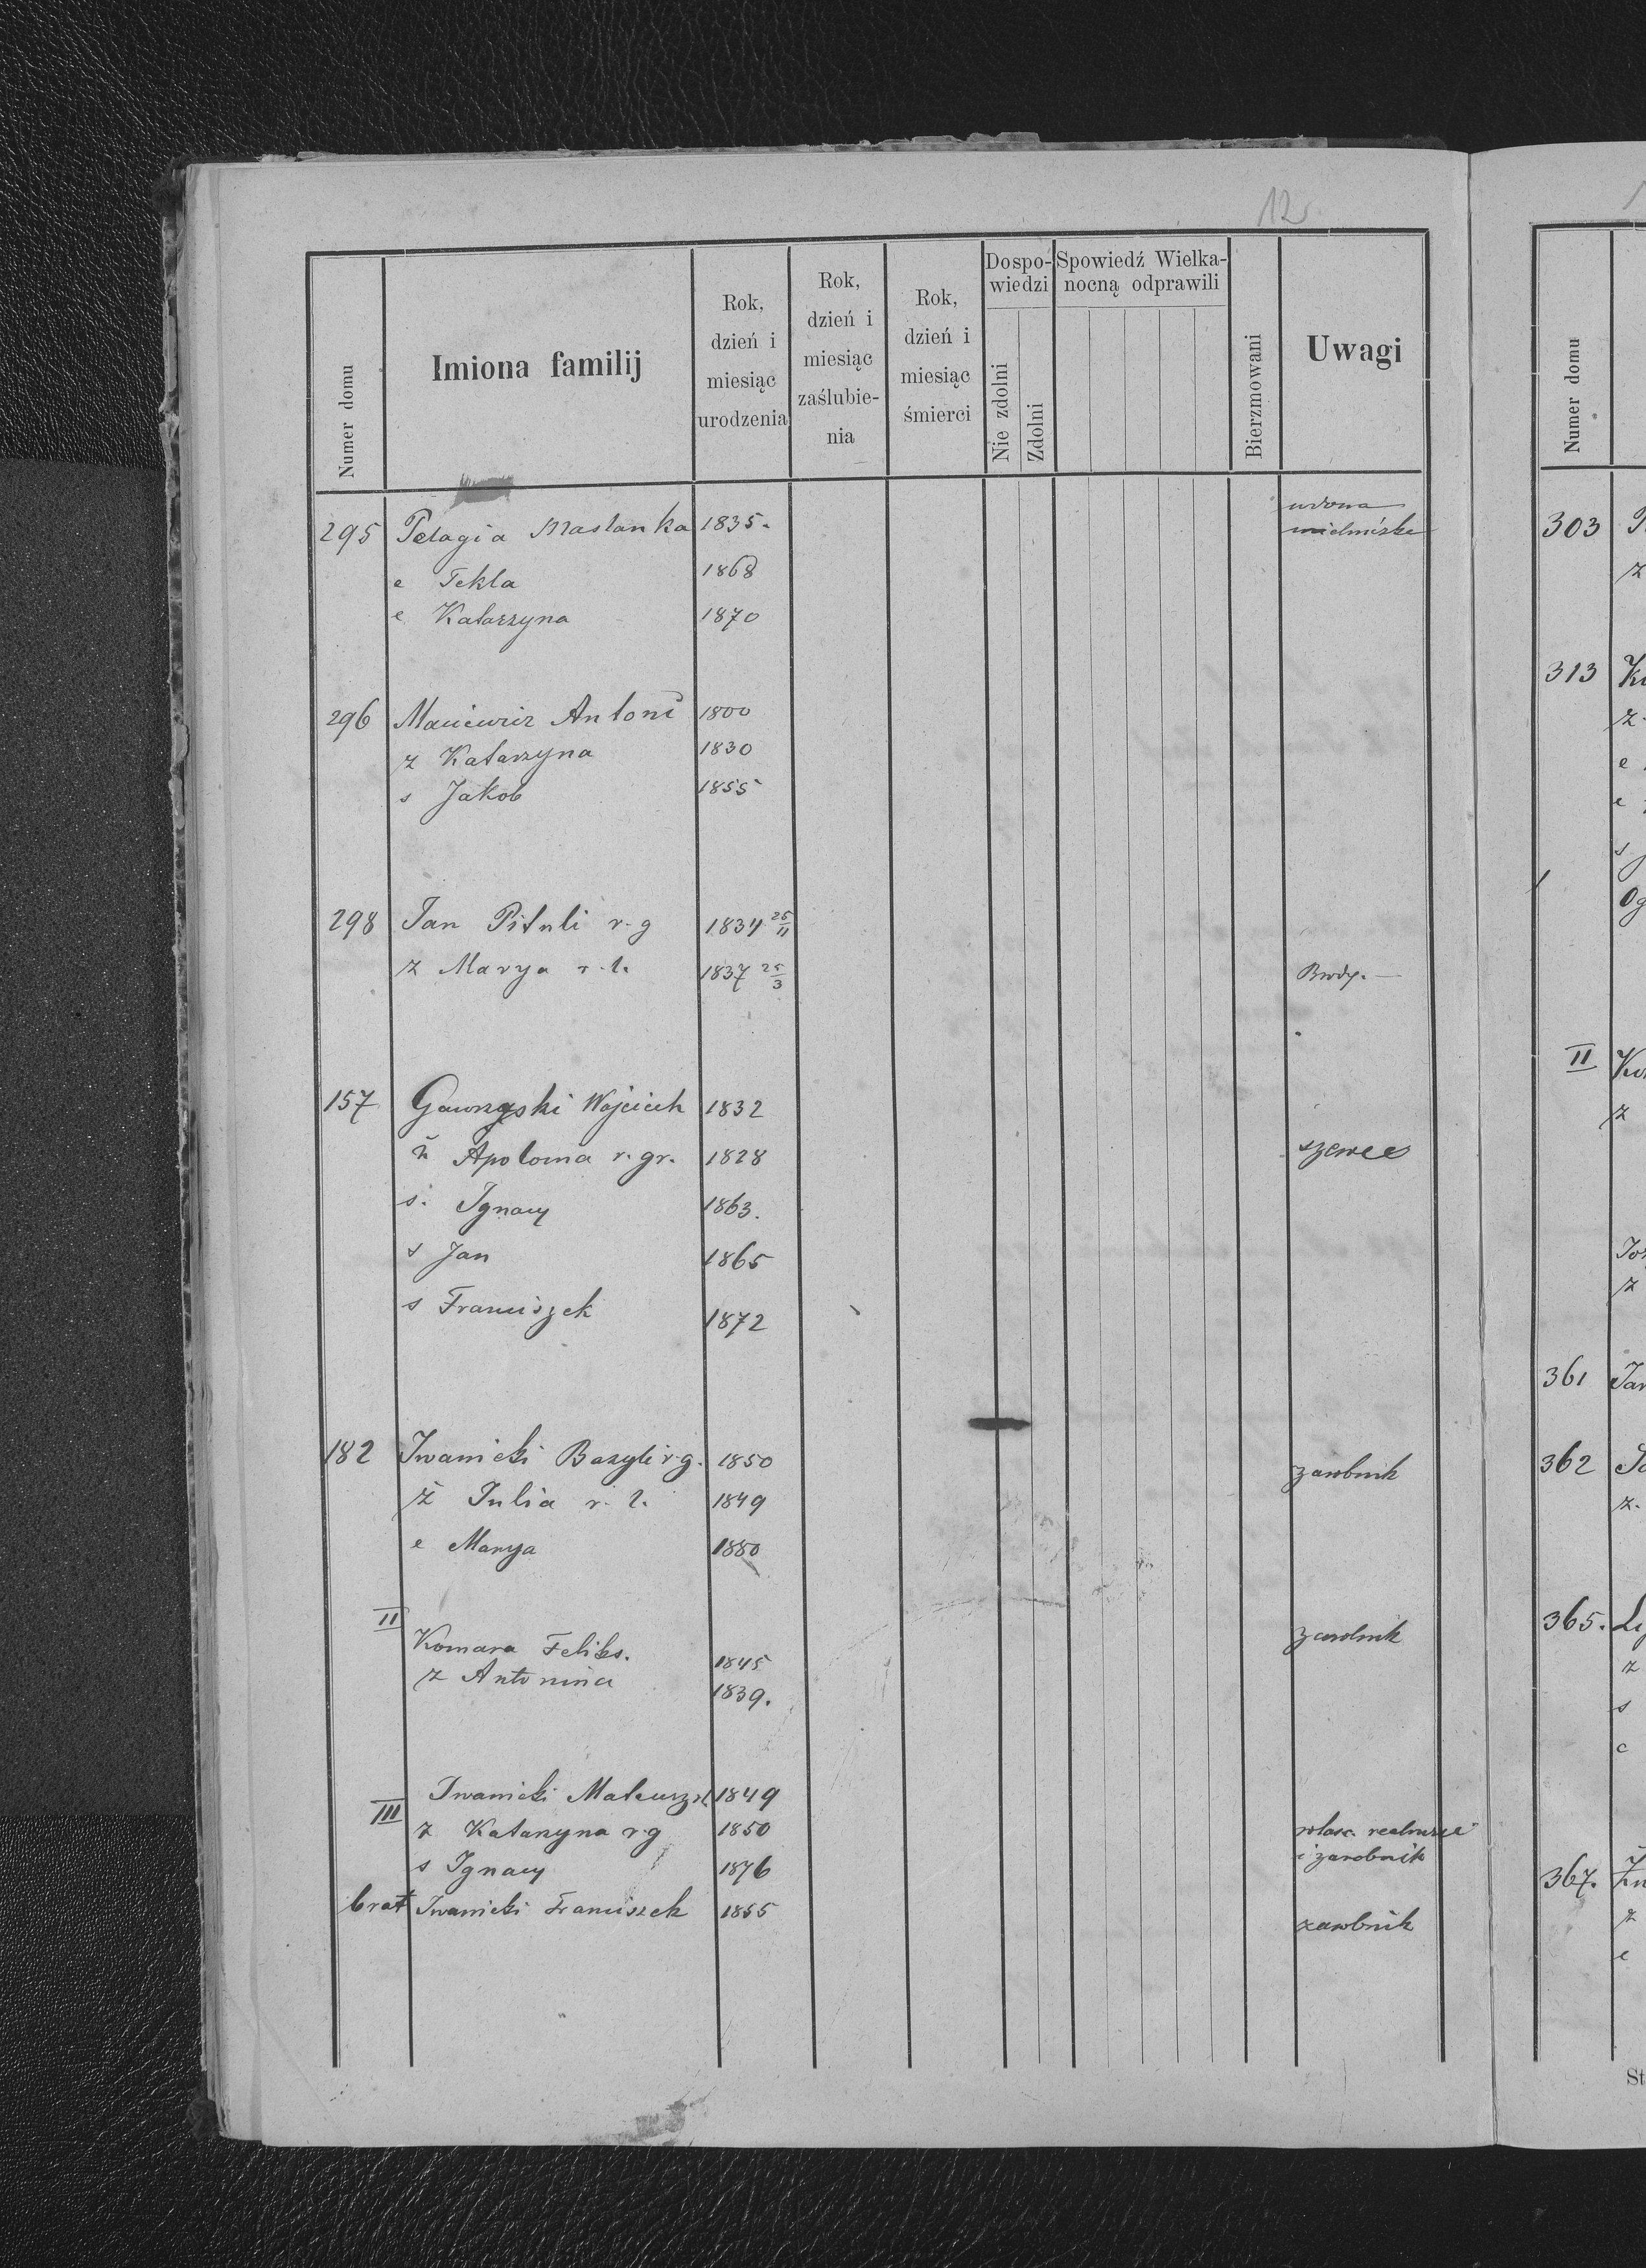 12
Numer domu
Imiona familij
Rok, dzień i miesiąc urodzenia
Rok, dzień i miesiąc zaślubienia
Rok, dzień i miesiąc śmierci
Dospowiedzi
Nie zdolni
Zdolni
Spowiedź Wielkanocną odprawili
Bierzmowani
Uwagi
295 Pelagia Maslanka 1835. wdowa
c Tekla 1868
c Katarzyna 1870
296 Antoni 1800
z Katarzyna 1830
s Jakob 1855
298 Jan Pituli r. g 1834 25/11
z Marya r. l. 1837 25/3 Brody. —
157 Wojciech 1832
ż Apolonia r. gr. 1828 szewc
s. Ignacy 1863.
s Jan 1865
s Franciszek 1872
182 Iwanicki Bazyli r. g. 1850 zarobnik
ż Julia r. l. 1849
c Marya 1880
II
Komara Feliks. 1845 zarobnik
z Antonina 1839.
III
Iwanicki Mateusz 1849
z Katarzyna r. g 1850
s Ignacy 1876 i zarobnik
brat Iwanicki Franciszek 1855 zarobnik
Numer domu
303
z
313
z
e
s
II
z
361
362
z.
365.
z
s
c
367.
z
St